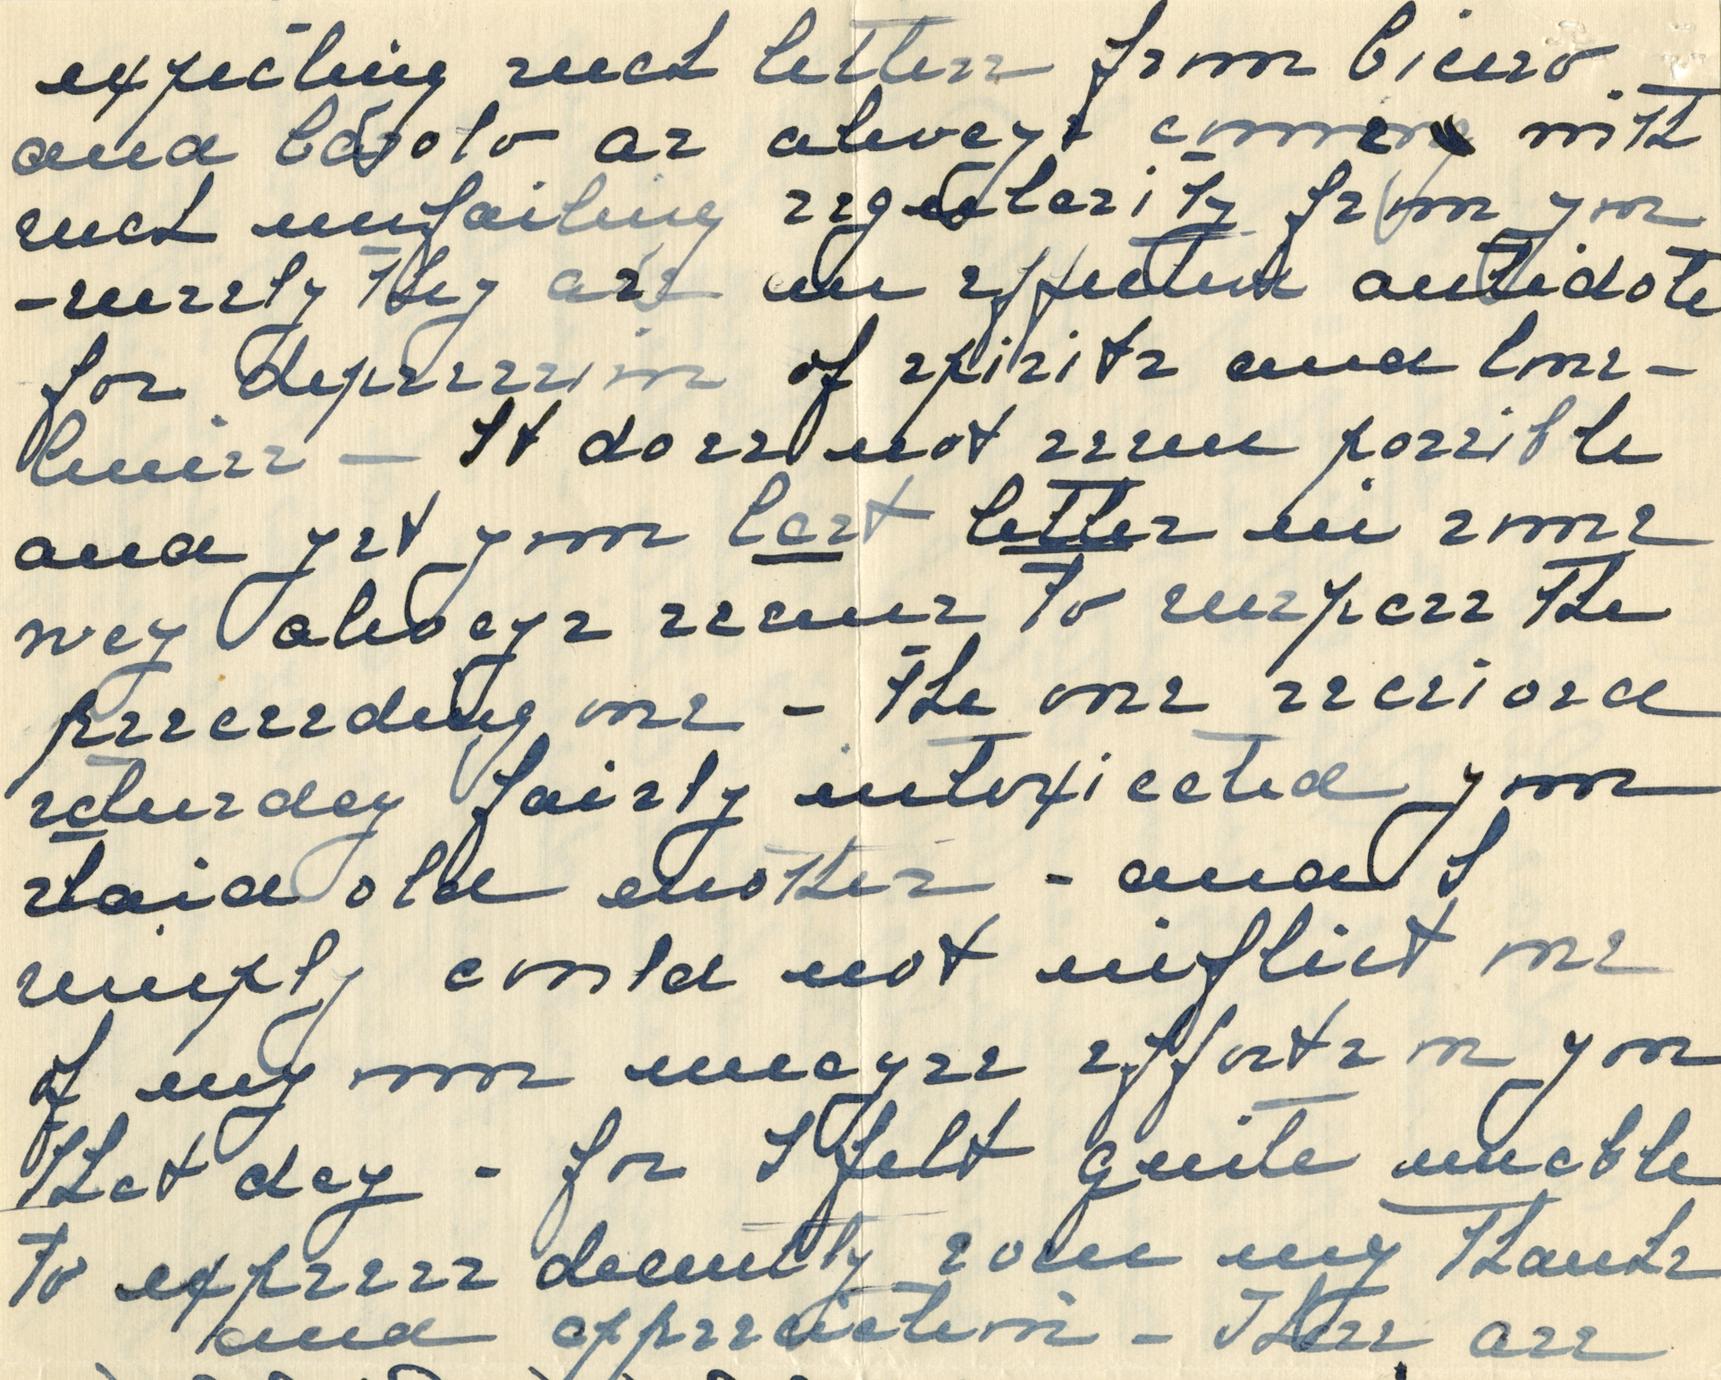 expecting such letters from Cicero
and Carlo as always coming with
such unfailing regularity from you
- surely they are an effective antidote
for depression of spirits and lone-
liness - It does not seem possible
and yet your last letter in some
way always seems to surpass the
preceeding one - The one received
saturday fairly intoxicated your
staid old mother - and I
simply could not inflict one
of my own meagre efforts on you
that day - for I felt quite unable
to express decently even my thanks
and appreciation - There are